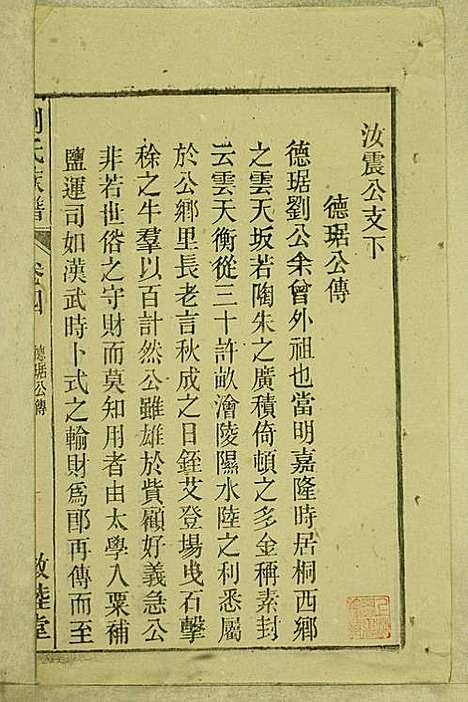 汝震公支下
德琚公傳
德琚劉公余曾外祖也當明嘉隆時居桐西鄉
之雲天坂若陶朱之廣積倚頓之多金稱素封
云雲天衡從三十許畝澮陵隰水陸之利悉屬
於公鄉里長老言秋成之日銍艾登場曳石擊
稌之牛羣以百計然公雖雄於貲顧好義急公
非若世俗之守財而莫知用者由太學入粟補
鹽運司如漢武時卜式之輸財爲郎再傳而至
劉氏族譜
卷四
德琚公傳
一
敦睦堂